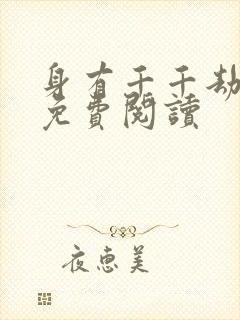 身有千千劫
免費閱讀
夜惠美